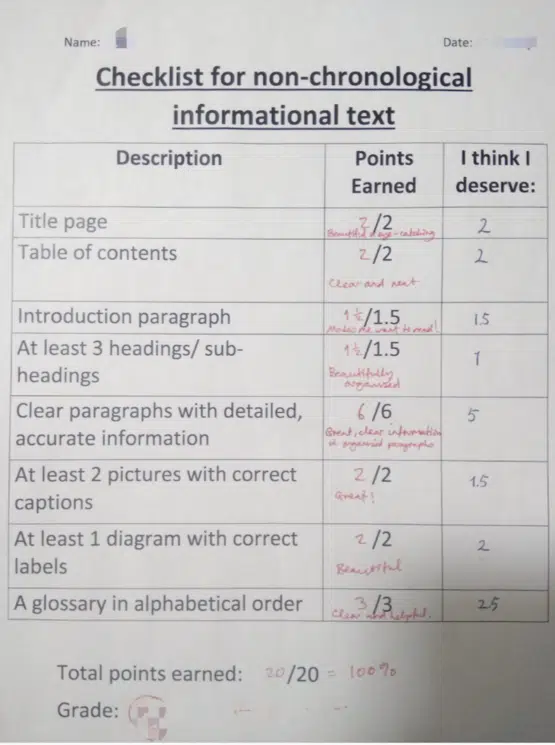 Name:
Date:
Checklist for non-chronological
informational text
Description
Points
Earned
I think I
deserve:
Title page
2/2
Beautiful & eye-catching
2
Table of contents
2/2
Clear and neat
2
Introduction paragraph
1½/1.5
Makes me want to read!
1.5
At least 3 headings/ sub-
headings
1½/1.5
Beautifully
organised
1
Clear paragraphs with detailed,
accurate information
6/6
Great, clear information
in organised paragraphs
5
At least 2 pictures with correct
captions
2/2
Great!
1.5
At least 1 diagram with correct
labels
2/2
Beautiful
2
A glossary in alphabetical order
3/3
Clear and helpful.
2.5
Total points earned: 20/20 = 100%
Grade: